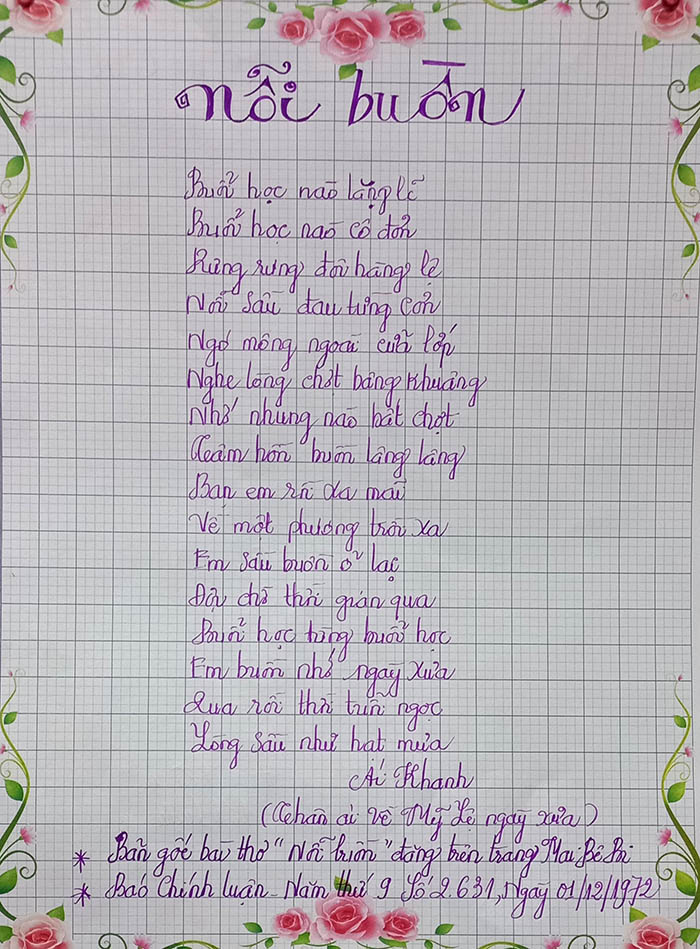 nỗi buồn
Buổi học nào lặng lẽ
Buổi học nào cô đơn
Rưng rưng đôi hàng lệ
Nỗi sầu đau từng cơn
Ngó mông ngoài cửa lớp
Nghe lòng chợt bâng khuâng
Nhớ nhung nào bất chợt
Cảm hồn buồn lâng lâng
Bạn em rồi xa mãi
Về một phương trời xa
Em sầu buồn ở lại
Đợi chờ thời gian qua
Buổi học từng buổi học
Em buồn nhớ ngày xưa
Qua rồi thời tuổi ngọc
Lòng sầu như hạt mưa
Ái Khanh
(Chân ái về Mỹ Lệ ngày xưa)
* Bản gốc bài thơ "Nỗi buồn" đăng trên trang Mai Bê Bi
* Báo Chính luận - Năm thứ 9 Số 2.631, Ngày 01/12/1972